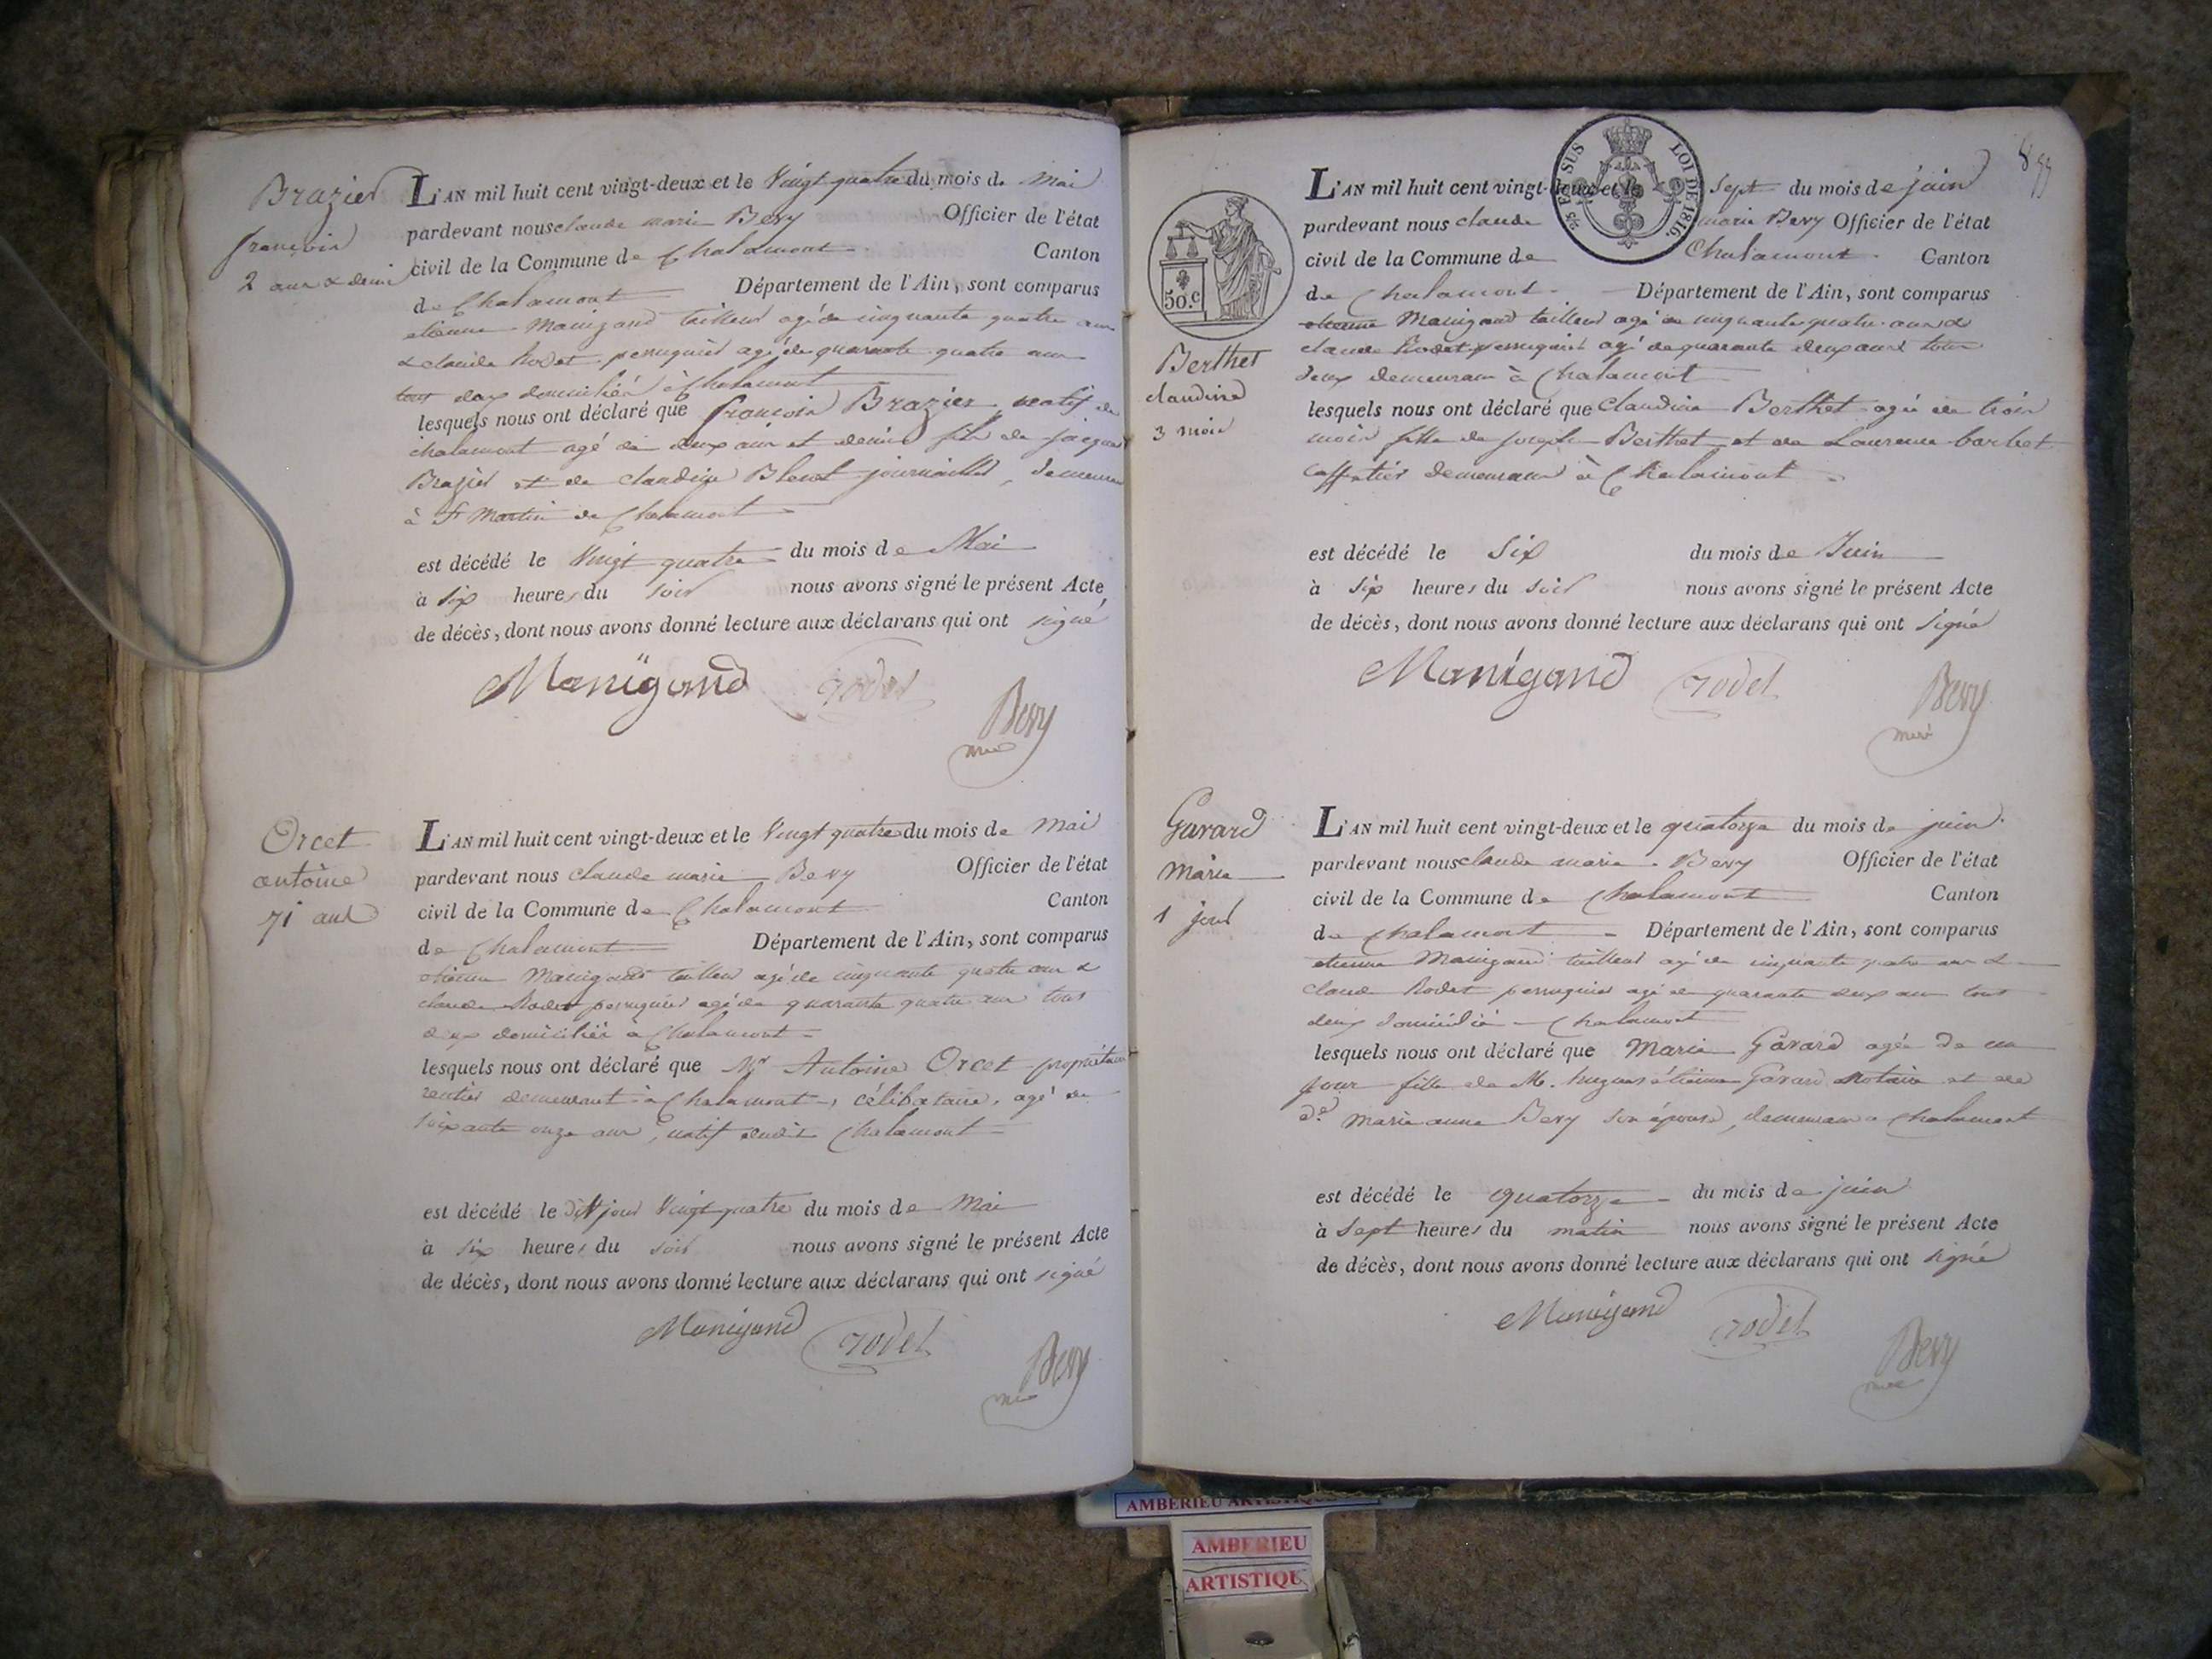 Brazier
françois
2 ans & demi
L'AN mil huit cent vingt-deux et le Vingt quatre du mois de Mai
pardevant nous claude marie Bevy Officier de l'état
civil de la Commune de Chalamont Canton
de Chalamont Département de l'Ain, sont comparus
etienne Manigand tailleur agé de cinquante quatre ans
& claude Rodet perruquier agé de quarante quatre ans
tous deux domiciliés à Chalamont
lesquels nous ont déclaré que françois Brazier natif de
chalamont agé de deux ans et demi fils de jacques
Brazier et de claudine journalier, demeurant
à St Martin de Chalamont
est décédé le Vingt quatre du mois de Mai
à six heures du soir nous avons signé le présent Acte
de décès, dont nous avons donné lecture aux déclarans qui ont signé
Manigand rodet
Bevy
Orcet
antoine
71 ans
L'AN mil huit cent vingt-deux et le Vingt quatre du mois de Mai
pardevant nous claude marie Bevy Officier de l'état
civil de la Commune de Chalamont Canton
de Chalamont Département de l'Ain, sont comparus
etienne Manigand tailleur agé de cinquante quatre ans &
claude Rodet perruquier agé de quarante quatre ans tous
deux domiciliés à Chalamont
lesquels nous ont déclaré que Mr Antoine Orcet propriétaire
rentier demeurant à Chalamont, célibataire, agé de
soixante onze ans, natif dudit Chalamont
est décédé le dit jour Vingt quatre du mois de Mai
à six heures du soir nous avons signé le présent Acte
de décès, dont nous avons donné lecture aux déclarans qui ont signé
Manigand rodet
Bevy
1/2 EN SUS LOI DE 1816
50.c
Berthet
claudine
3 mois
L'AN mil huit cent vingt-deux et le Sept du mois de juin
pardevant nous claude marie Bevy Officier de l'état
civil de la Commune de Chalamont Canton
de Chalamont Département de l'Ain, sont comparus
etienne Manigand tailleur agé de cinquante quatre ans &
claude Rodet perruquier agé de quarante deux ans tous
deux demeurant à Chalamont
lesquels nous ont déclaré que Claudine Berthet agée de trois
mois fille de joseph Berthet et de Laurence barbet
caffetier demeurant à Chalamont
est décédé le Six du mois de Juin
à six heures du soir nous avons signé le présent Acte
de décès, dont nous avons donné lecture aux déclarans qui ont Signé
Manigand rodet
Bevy
Garard
Marie
1 jour
L'AN mil huit cent vingt-deux et le quatorze du mois de juin
pardevant nous claude marie Bevy Officier de l'état
civil de la Commune de Chalamont Canton
de chalamont Département de l'Ain, sont comparus
etienne Manigand tailleur agé de cinquante quatre ans &
claude Rodet perruquier agé de quarante deux ans tous
deux domicilié Chalamont
lesquels nous ont déclaré que Marie Gavard agée de un
jour fille de M. hugues étienne Gavard Notaire et de
de Marie anne Bevy son épouse, demeurant a Chalamont
est décédé le quatorze du mois de juin
à Sept heures du matin nous avons signé le présent Acte
de décès, dont nous avons donné lecture aux déclarans qui ont signé
Manigand rodet
Bevy
AMBERIEU
AMBERIEU
ARTISTIQU